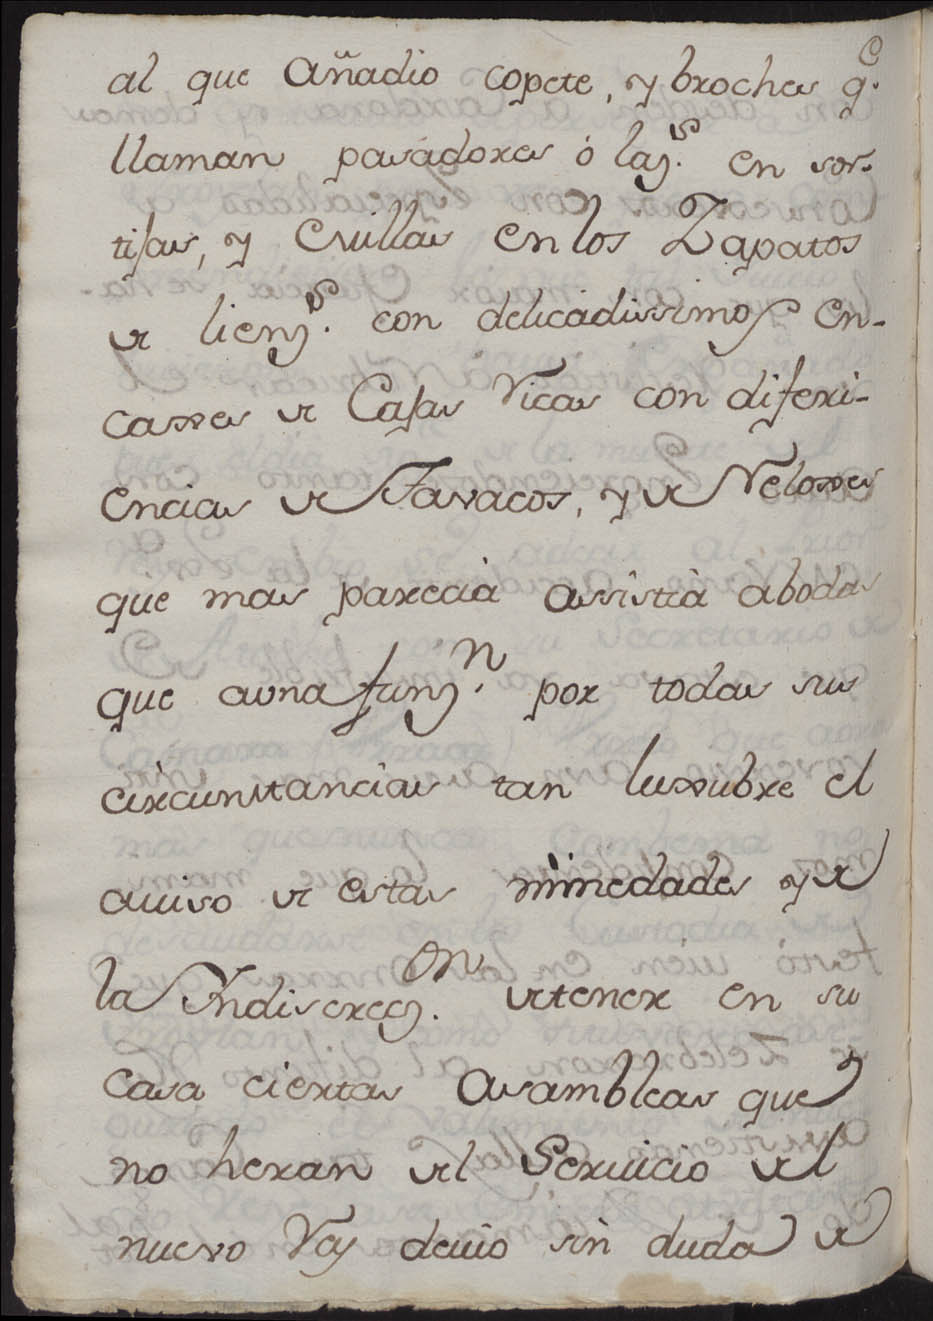 al que añadio copete, y broches q.e
llaman pasadores ó laz.s en sor-
tijas, y Evillas en los Zapatos
de lienz.s con delicadissimos en-
caxes de Cajas Ricas con diferi-
encias de Tavacos, y de Reloxes
que mas parecia assistia aboda
que auna funz.n por todas sus
circunstancias tan lugubre el
auiso de estas nimiedades y de
la Indiscrez.on detener en su
casa ciertas Asambleas que
no heran del Seruicio del
nuevo Rey deuio sin duda de